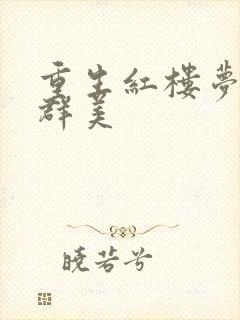 重生紅樓夢
群美
曉若兮